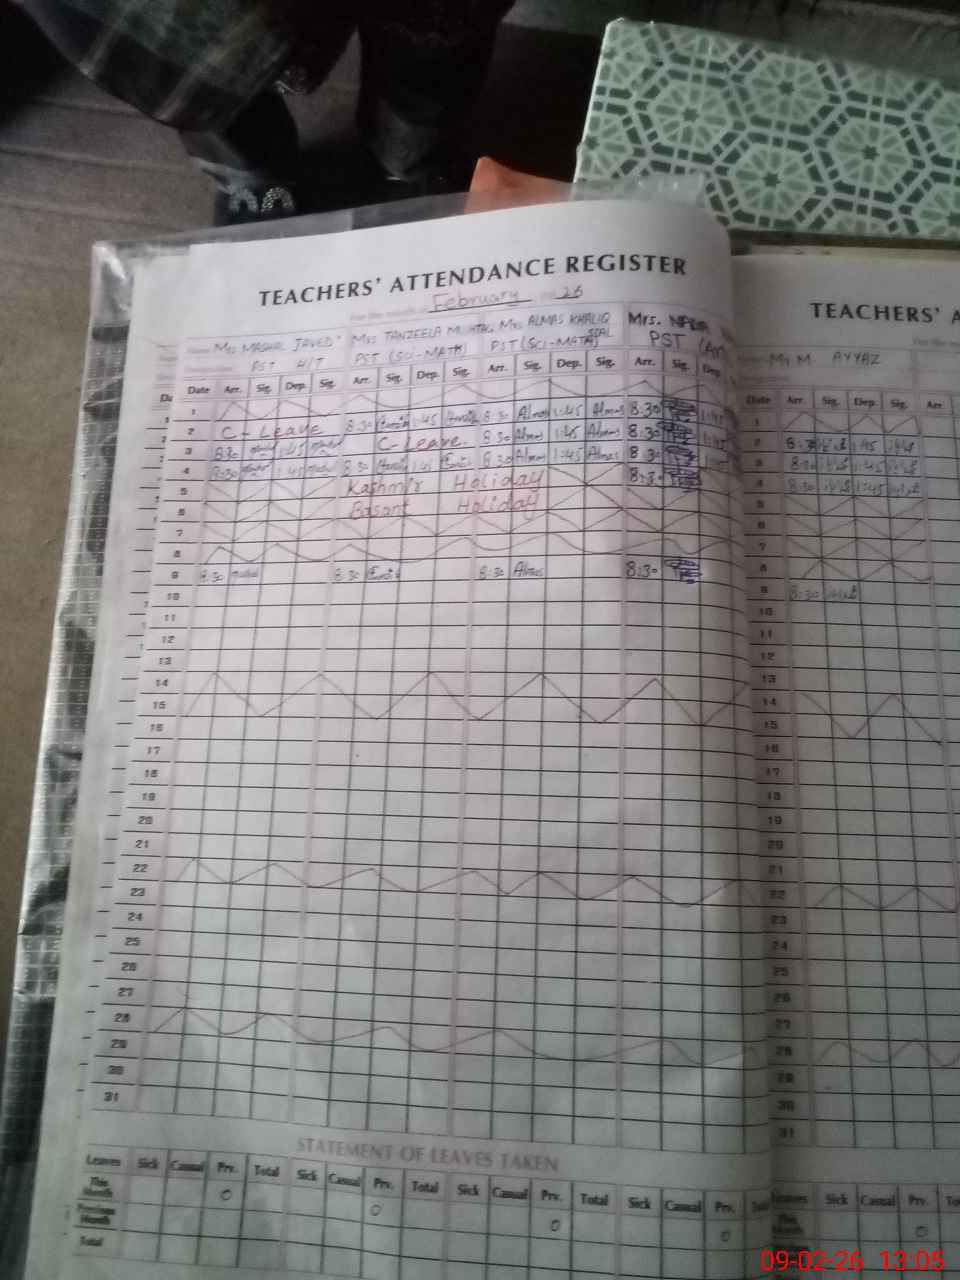 TEACHERS' ATTENDANCE REGISTER
For the month of February 2026
Name Mrs MASHAL JAVED Mrs TANZEELA MUSHTAQ Mrs ALMAS KHALIQ SIAL Mrs.
PST H/T PST (SCI-MATH) PST (SCI-MATH) PST
Date Arr. Sig. Dep. Sig. Arr. Sig. Dep. Sig. Arr. Sig. Dep. Sig. Arr. Sig. Dep.
1
2 C-Leave 8:30 1:45 8:30 Almas 1:45 Almas 8:30 1:45
3 8:30 1:45 C-Leave. 8:30 Almas 1:45 Almas 8:30 1:45
4 8:30 1:45 8:30 1:45 8:30 Almas 1:45 Almas 8:30 1:45
5 Kashmir Holiday 8:30
6 Basant Holiday
7
8
9 8:30 8:30 8:30 Almas 8:30
10
11
12
13
14
15
16
17
18
19
20
21
22
23
24
25
26
27
28
29
30
31
STATEMENT OF LEAVES TAKEN
Leaves Sick Casual Prv. Total Sick Casual Prv. Total Sick Casual Prv. Total Sick Casual Prv.
This Month 0 0 0 0
Previous Month
Total
TEACHERS' A
For the
Mr M. AYYAZ
Date Arr. Sig. Dep. Sig. Arr.
1
2 8:30 1:45
3 8:30 1:45
4 8:30 1:45
5
6
7
8
9 8:30
10
11
12
13
14
15
16
17
18
19
20
21
22
23
24
25
26
27
28
29
30
31
Leaves Sick Casual Prv.
This Month 0
Total
09-02-26 13:05